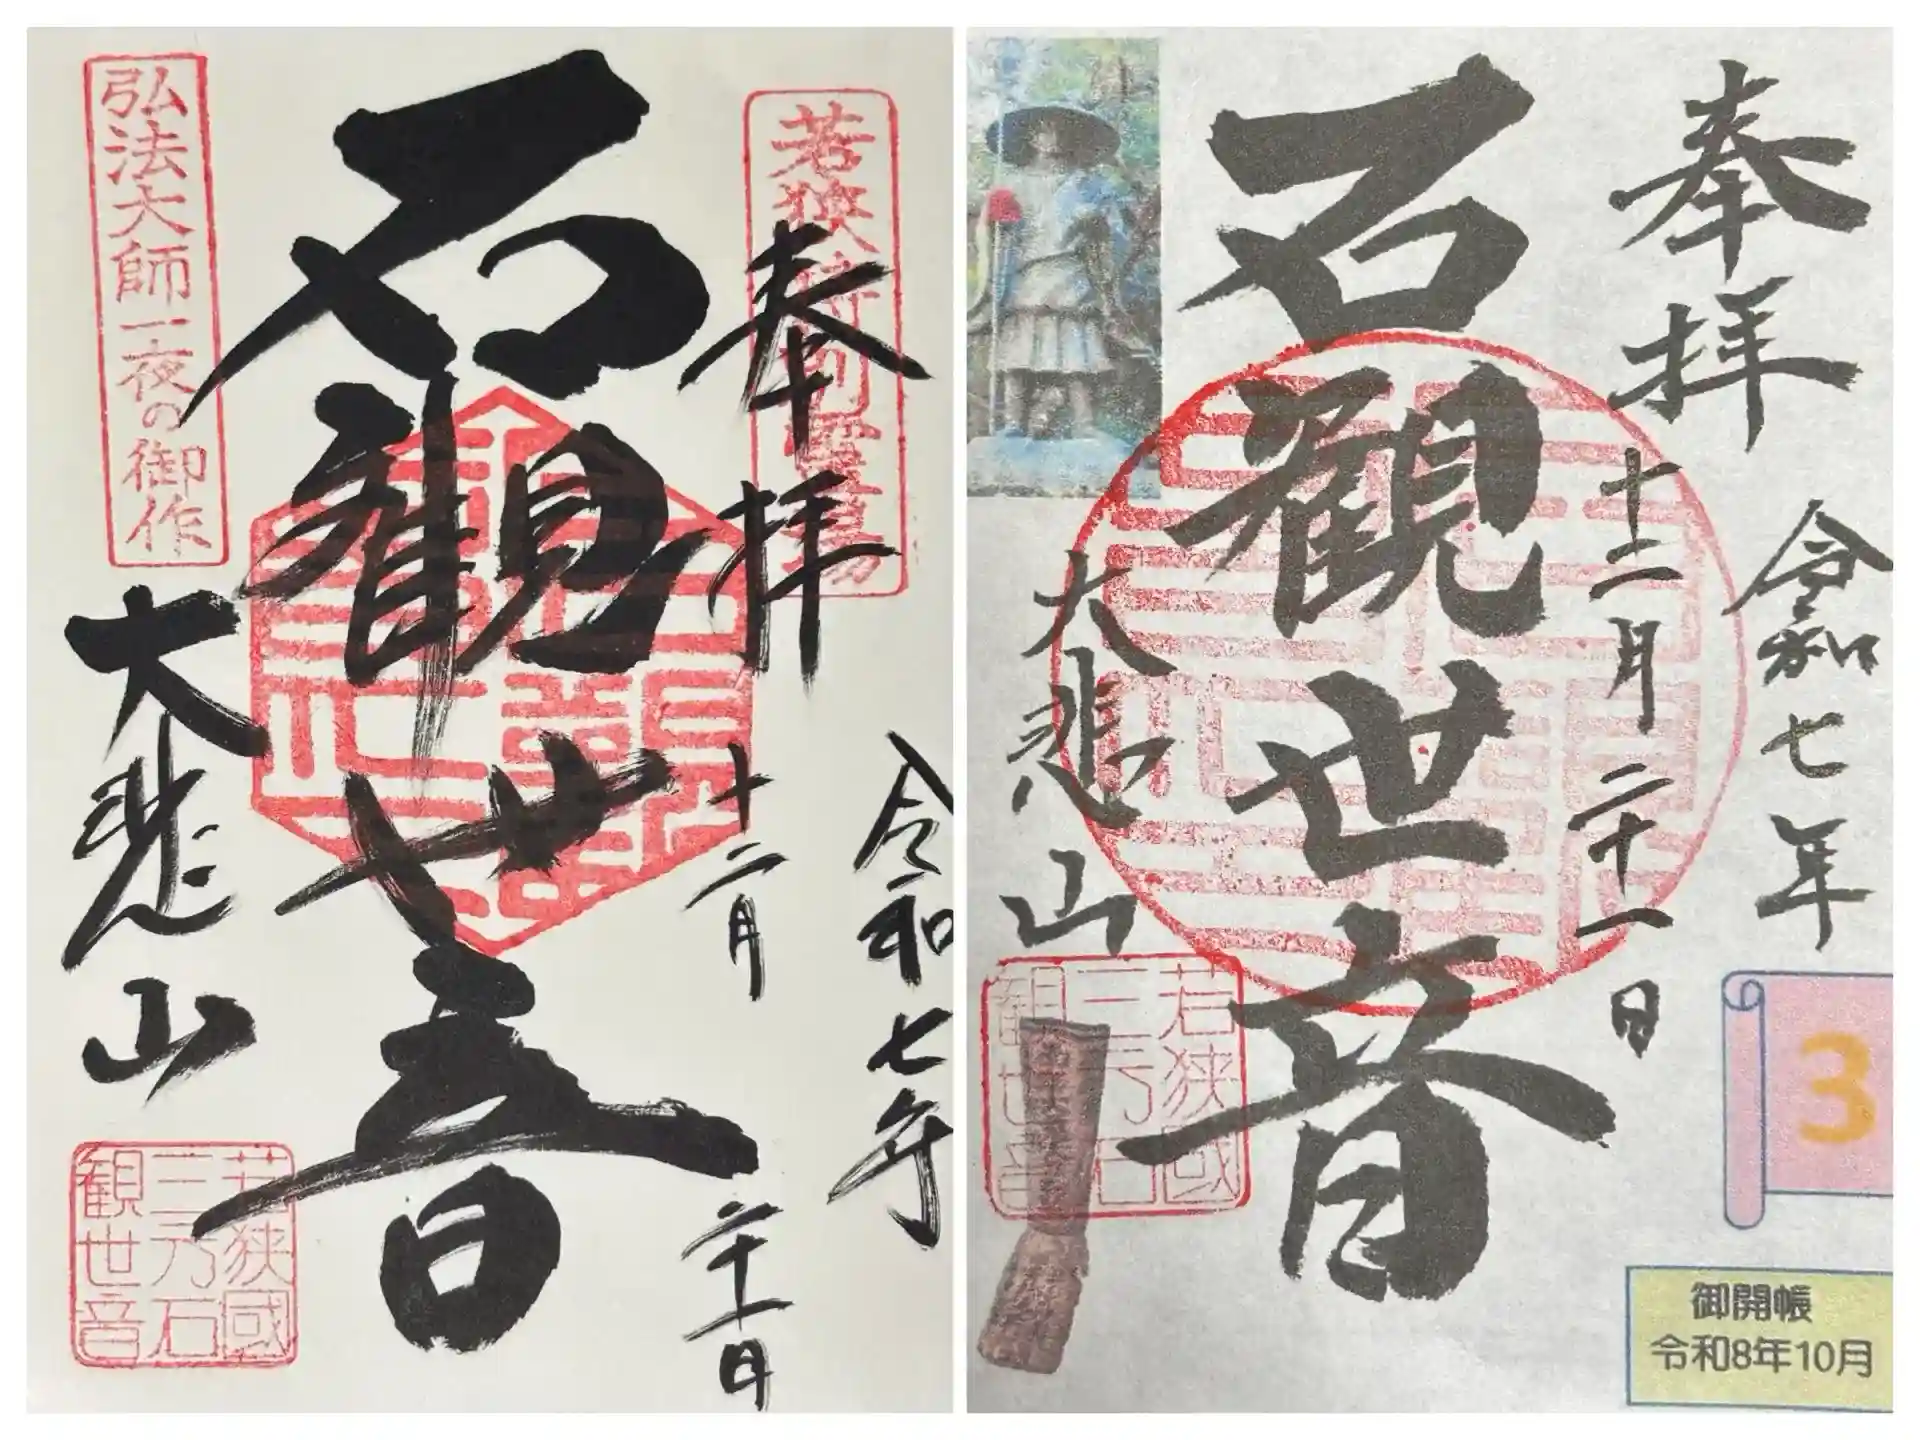 若狭特別霊場
奉拝
令和七年
十二月
二十一日
石観世音
弘法大師一夜の御作
大悲山
若狭國
三方石
観世音
奉拝
令和七年
十二月二十一日
石観世音
大悲山
若狭國
三方石
観世音
3
御開帳
令和8年10月